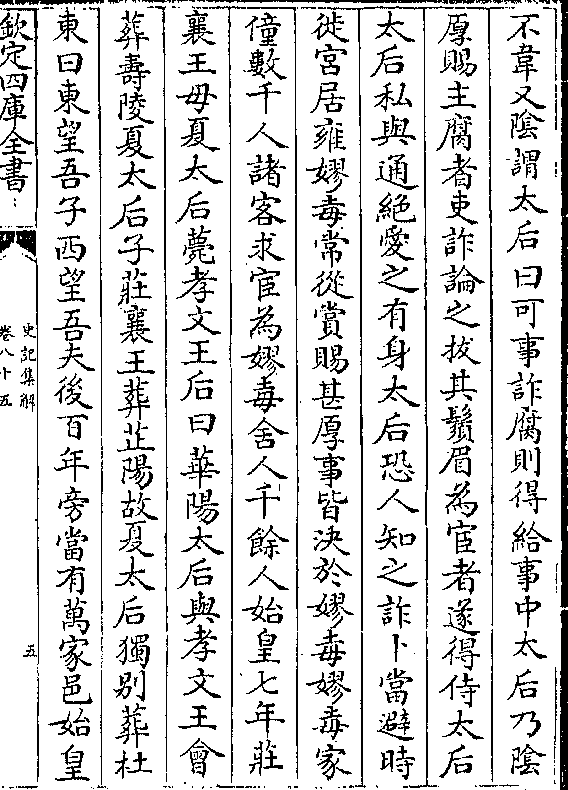 不韋又陰謂太后曰可事詐腐則得給事中太后乃陰
厚賜主腐者吏詐論之拔其鬚眉為宦者遂得侍太后
太后私與通絕愛之有身太后恐人知之詐卜當避時
徙宮居雍嫪毐常從賞賜甚厚事皆決於嫪毐嫪毐家
僮數千人諸客求宦為嫪毐舍人千餘人始皇七年莊
襄王母夏太后薨孝文王后曰華陽太后與孝文王會
葬壽陵夏太后子莊襄王葬芷陽故夏太后獨別葬杜
東曰東望吾子西望吾夫後百年旁當有萬家邑始皇
欽定四庫全書
史記集解
卷八十五
五